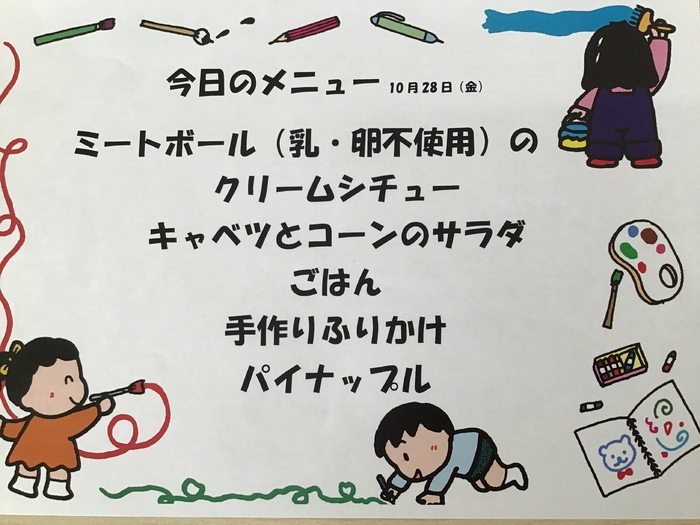 今日のメニュー 10月28日（金）
ミートボール（乳・卵不使用）の
クリームシチュー
キャベツとコーンのサラダ
ごはん
手作りふりかけ
パイナップル